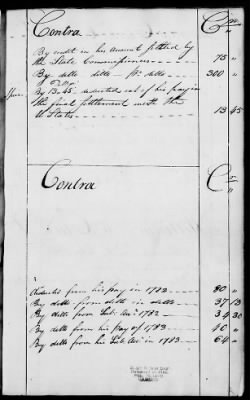 Contra Cr
By credit in his account settled by
the State Commissioners 75 "
By ditto ditto ditto 300 "
By 13.45 deducted out of his pay in
the final settlement with the
U States 13 45
Contra Cr
Deducted from his pay in 1782 80 "
By ditto from ditto in ditto 37 13
By ditto from Sub. Acct 1782 34 30
By ditto from his pay of 1783 40 "
By ditto from his Sub. Acct in 1783 64 "